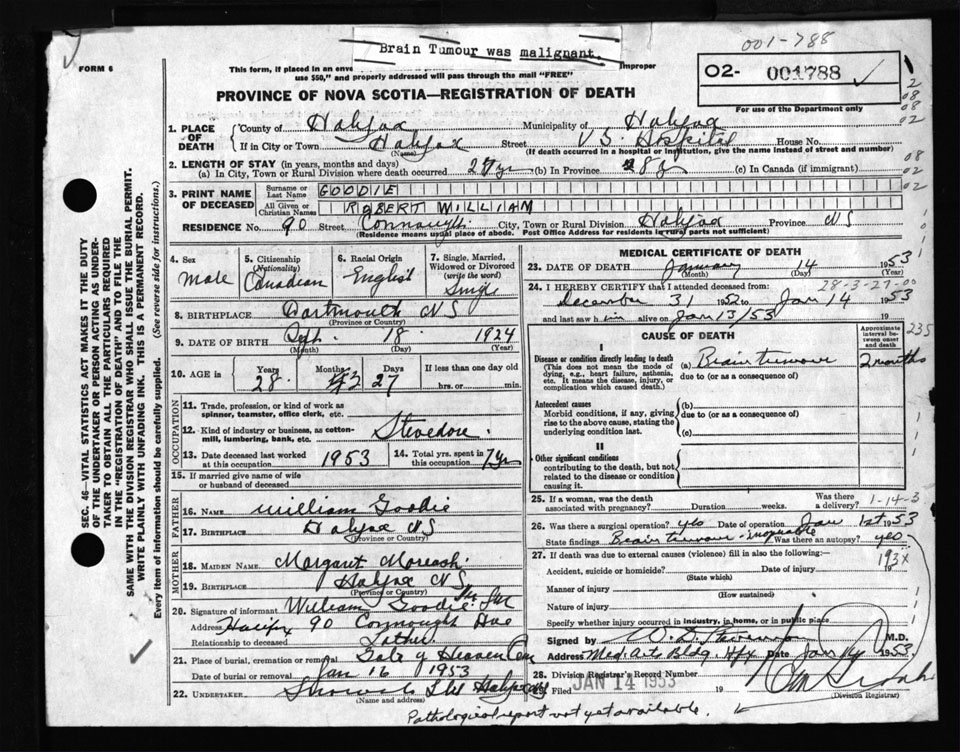 Brain Tumour was malignant.
001-788
FORM 6
This form, if placed in an enve
Improper
use $50," and properly addressed will pass through the mail "FREE"
O2- 001788 ✓
For use of the Department only
PROVINCE OF NOVA SCOTIA—REGISTRATION OF DEATH
1. PLACE OF DEATH
County of Halifax Municipality of Halifax
If in City or Town Halifax Street V. G. Hospital House No.
(Name) (If death occurred in a hospital or institution, give the name instead of street and number)
2. LENGTH OF STAY (in years, months and days)
(a) In City, Town or Rural Division where death occurred 27 yr (b) In Province 28 y (c) In Canada (if immigrant)
3. PRINT NAME OF DECEASED
Surname or Last Name GOODIE
All Given or Christian Names ROBERT WILLIAM
RESIDENCE No. 90 Street Connaught City, Town or Rural Division Halifax Province NS
(Residence means usual place of abode. Post Office Address for residents in rural parts not sufficient)
4. Sex Male
5. Citizenship (Nationality) Canadian
6. Racial Origin English
7. Single, Married, Widowed or Divorced (write the word) Single
8. BIRTHPLACE Dartmouth NS
(Province or Country)
9. DATE OF BIRTH Sept. 18 1924
(Month) (Day) (Year)
10. AGE in Years Months Days If less than one day old
28 27 hrs. or min.
OCCUPATION
11. Trade, profession, or kind of work as spinner, teamster, office clerk, etc.
12. Kind of industry or business, as cotton-mill, lumbering, bank, etc. Stevedore.
13. Date deceased last worked at this occupation 1953
14. Total yrs. spent in this occupation 7 yr
15. If married give name of wife or husband of deceased
FATHER
16. NAME William Goodie
17. BIRTHPLACE Halifax NS
(Province or Country)
MOTHER
18. MAIDEN NAME Margaret
19. BIRTHPLACE Halifax NS
(Province or Country)
20. Signature of informant William Goodie
Address Halifax 90 Connaught Ave
Relationship to deceased Father.
21. Place of burial, cremation or removal Gate of Heaven Cem
Date of burial or removal Jan 16 1953
22. UNDERTAKER Snow Halifax
(Name and address)
MEDICAL CERTIFICATE OF DEATH
23. DATE OF DEATH January 14 1953
(Month) (Day) (Year)
24. I HEREBY CERTIFY that I attended deceased from:
28-3-27-00
December 31 1952 to Jan 14 1953
and last saw him alive on Jan 13/53 19
CAUSE OF DEATH
Approximate interval between onset and death
235
I
Disease or condition directly leading to death (a) Brain tumour 2 months
(This does not mean the mode of dying, e.g., heart failure, asthenia, etc. It means the disease, injury, or complication which caused death.)
due to (or as consequence of)
Antecedent causes (b)
Morbid conditions, if any, giving rise to the above cause, stating the underlying condition last.
due to (or as consequence of)
(c)
II
Other significant conditions
contributing to the death, but not related to the disease or condition causing it.
25. If a woman, was the death associated with pregnancy? Duration weeks. Was there a delivery?
1-14-3
26. Was there a surgical operation? yes Date of operation Jan 1st 1953
State findings Brain tumour - inoperable Was there an autopsy? yes
27. If death was due to external causes (violence) fill in also the following: 193x
Accident, suicide or homicide? Date of injury 19
(State which)
Manner of injury
(How sustained)
Nature of injury
Specify whether injury occurred in industry, in home, or in public place
Signed by M.D.
Address Med. Arts Bldg. Hfx Date Jan 14 1953
28. Division Registrar's Record Number
29. Filed JAN 14 1953 19
(Division Registrar)
Pathological report not yet available.
SEC. 46—VITAL STATISTICS ACT MAKES IT THE DUTY
OF THE UNDERTAKER OR PERSON ACTING AS UNDER-
TAKER TO OBTAIN ALL THE PARTICULARS REQUIRED
IN THE "REGISTRATION OF DEATH" AND TO FILE THE
SAME WITH THE DIVISION REGISTRAR WHO SHALL ISSUE THE BURIAL PERMIT.
WRITE PLAINLY WITH UNFADING INK. THIS IS A PERMANENT RECORD.
Every item of information should be carefully supplied. (See reverse side for instructions.)
2
08
08
02
08
02